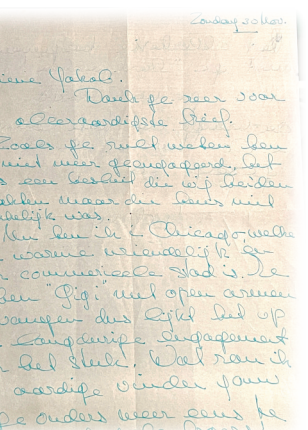 Zondag 30 Nov.
ieve Yakob.
Dank je zeer voor
alleraardigste brief.
Zoals je zult weten ben
niet meer geëngageerd, het
s een besluit die wij beiden
maar die heus niet
kelijk was.
Nu ben ik in Chicago, welke
warme vriendelijk en
commerciele stad is. Ze
ben "Gigi" met open armen
vangen dus lijkt het op
langdurige engagement
het stuk. Wat kan ik
aardige vinden jouw
je ouders weer eens te